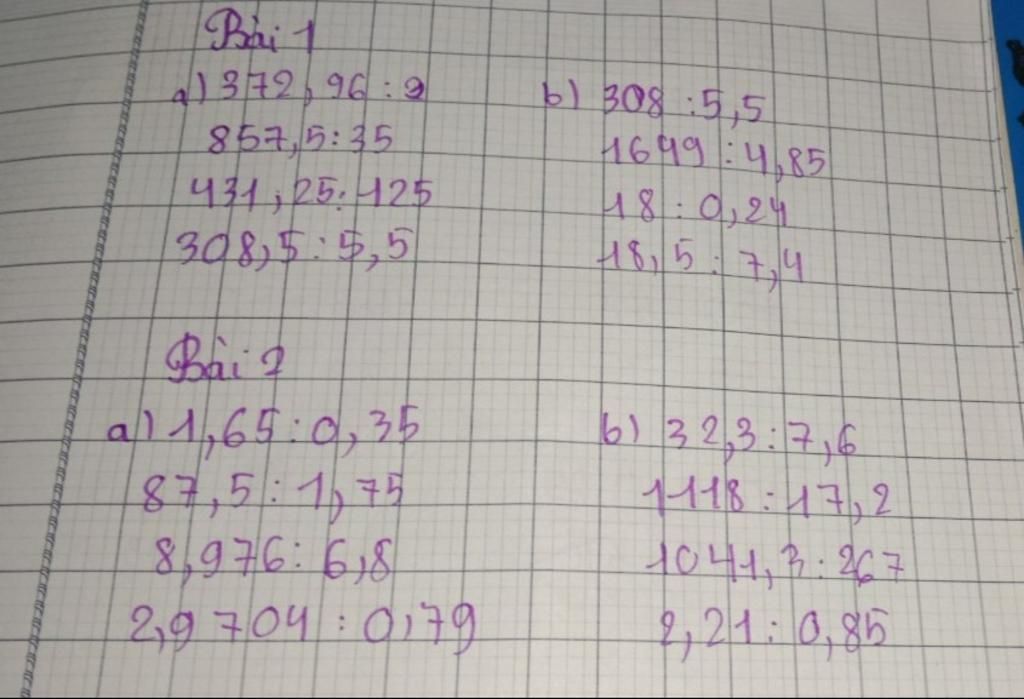 Bài 1
a) 372,96 : 2
857,5 : 35
431,25 : 125
308,5 : 5,5
b) 308 : 5,5
1649 : 4,85
18 : 0,24
18,5 : 7,4
Bài 2
a) 1,65 : 0,35
87,5 : 1,75
8,976 : 6,8
2,9704 : 0,79
b) 32,3 : 7,6
1118 : 17,2
1041,3 : 267
2,21 : 0,85